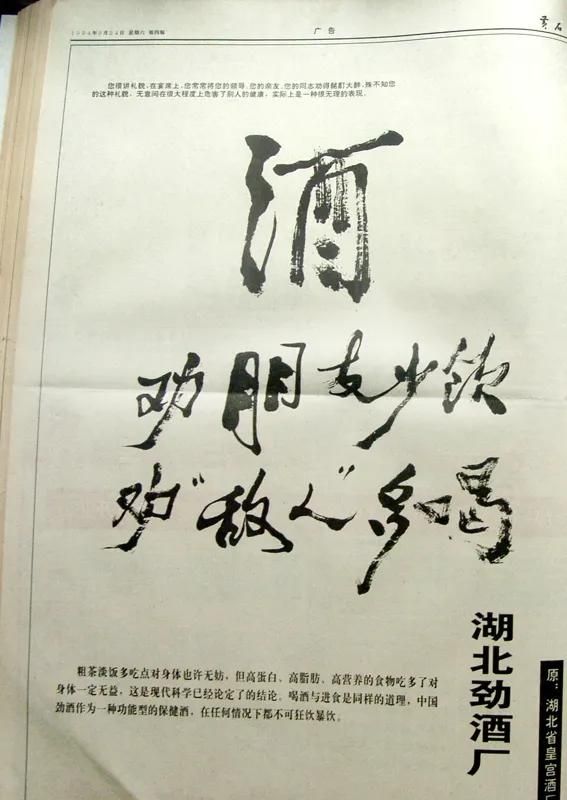 1994年9月24日 星期六 第四版
广告
黄石
您很讲礼貌，在宴席上，您常常将您的领导、您的亲友、您的同志劝得酩酊大醉，殊不知您
的这种礼貌，无意间在很大程度上危害了别人的健康，实际上是一种很无理的表现。
酒
劝朋友少饮
劝“敌人”多喝
粗茶淡饭多吃点对身体也许无妨，但高蛋白、高脂肪、高营养的食物吃多了对
身体一定无益，这是现代科学已经论定了的结论。喝酒与进食是同样的道理，中国
劲酒作为一种功能型的保健酒，在任何情况下都不可狂饮暴饮。
湖北劲酒厂
原：湖北省皇宫酒厂